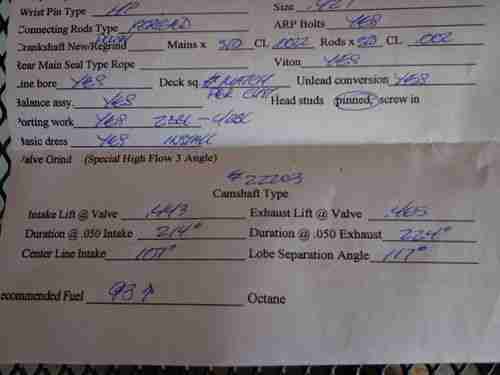 Wrist Pin Type Size .927
Connecting Rods Type ARP Bolts YES
Crankshaft New/Regrind Mains x STD CL .0022 Rods x STD CL .002
Rear Main Seal Type Rope Viton YES
Line bore YES Deck sq. Unlead conversion YES
PER CUST
Balance assy. YES Head studs pinned, screw in
Porting work YES
Basic dress YES INSTALL
Valve Grind (Special High Flow 3 Angle)
#22203
Camshaft Type
Intake Lift @ Valve .443 Exhaust Lift @ Valve .465
Duration @ .050 Intake 214° Duration @ .050 Exhaust 224°
Center Line Intake 107° Lobe Separation Angle 117°
ecommended Fuel 93 Octane